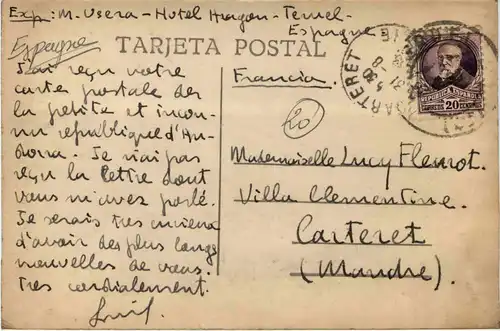 Exp: M. Usera - Hotel Aragon - Teruel -
Espagne
Espagne
TARJETA POSTAL
Francia.
J'ai reçu votre
carte postale de
la petite et incon-
nue république d'An-
dorra. Je n'ai pas
reçu la lettre dont
vous m'avez parlé.
Je serais très
d'avoir des plus longs
nouvelles de vous.
Très cordialement.
20
CARTERET
REPUBLICA ESPAÑOLA
CORREOS 20 CENTIMOS
Mademoiselle Lucy Flemot.
Villa Clementine.
Carteret
(Manche).